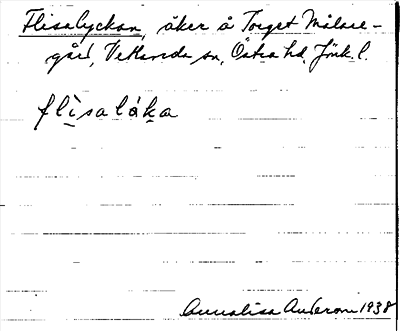 Flisalyckan, åker å Torget Målare-
gård, Vetlanda sn, Östra hd, Jönk. l.
flìsalák̲a
Annalisa Anderson 1938